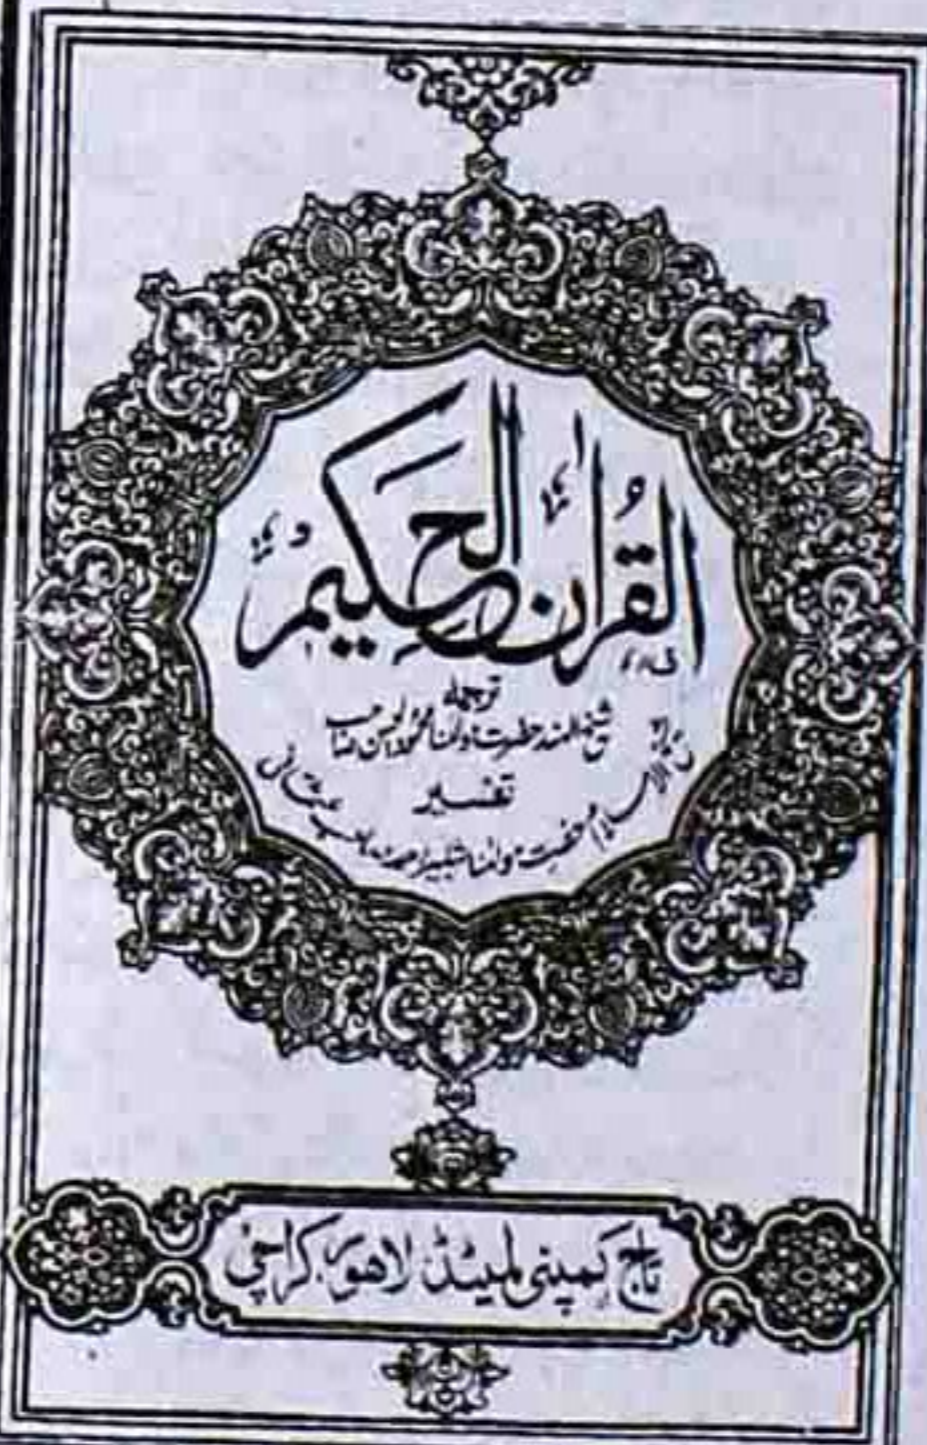 القُرآن الحكيم
ترجمہ
شیخ الہند حضرت مولٰنا محمود الحسن صاحب
تفسیر
شیخ الاسلام حضرت مولٰنا شبیر احمد صاحب عثمانی
تاج کمپنی لمیٹڈ لاہور، کراچی